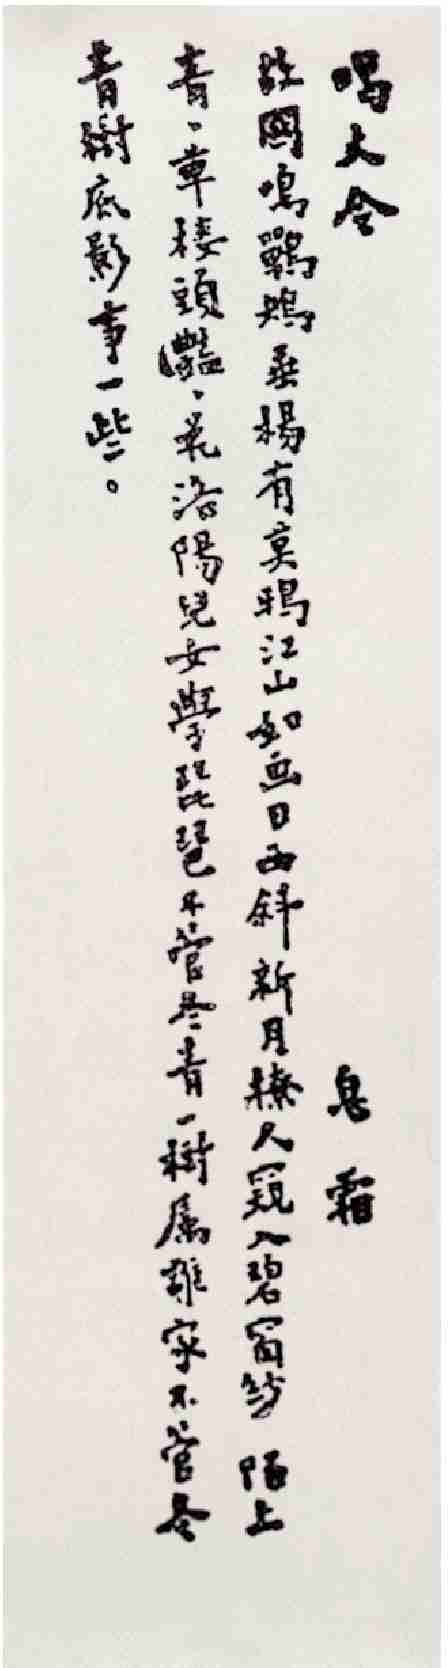 喝火令
息霜
故國鳴鷤鴂垂楊有莫鴉江山如画日西斜新月撩人窺入碧窗紗 陌上
青、草樓頭灩、花洛陽兒女學琵琶不管冬青一樹屬誰家不管冬
青樹底影事一些。